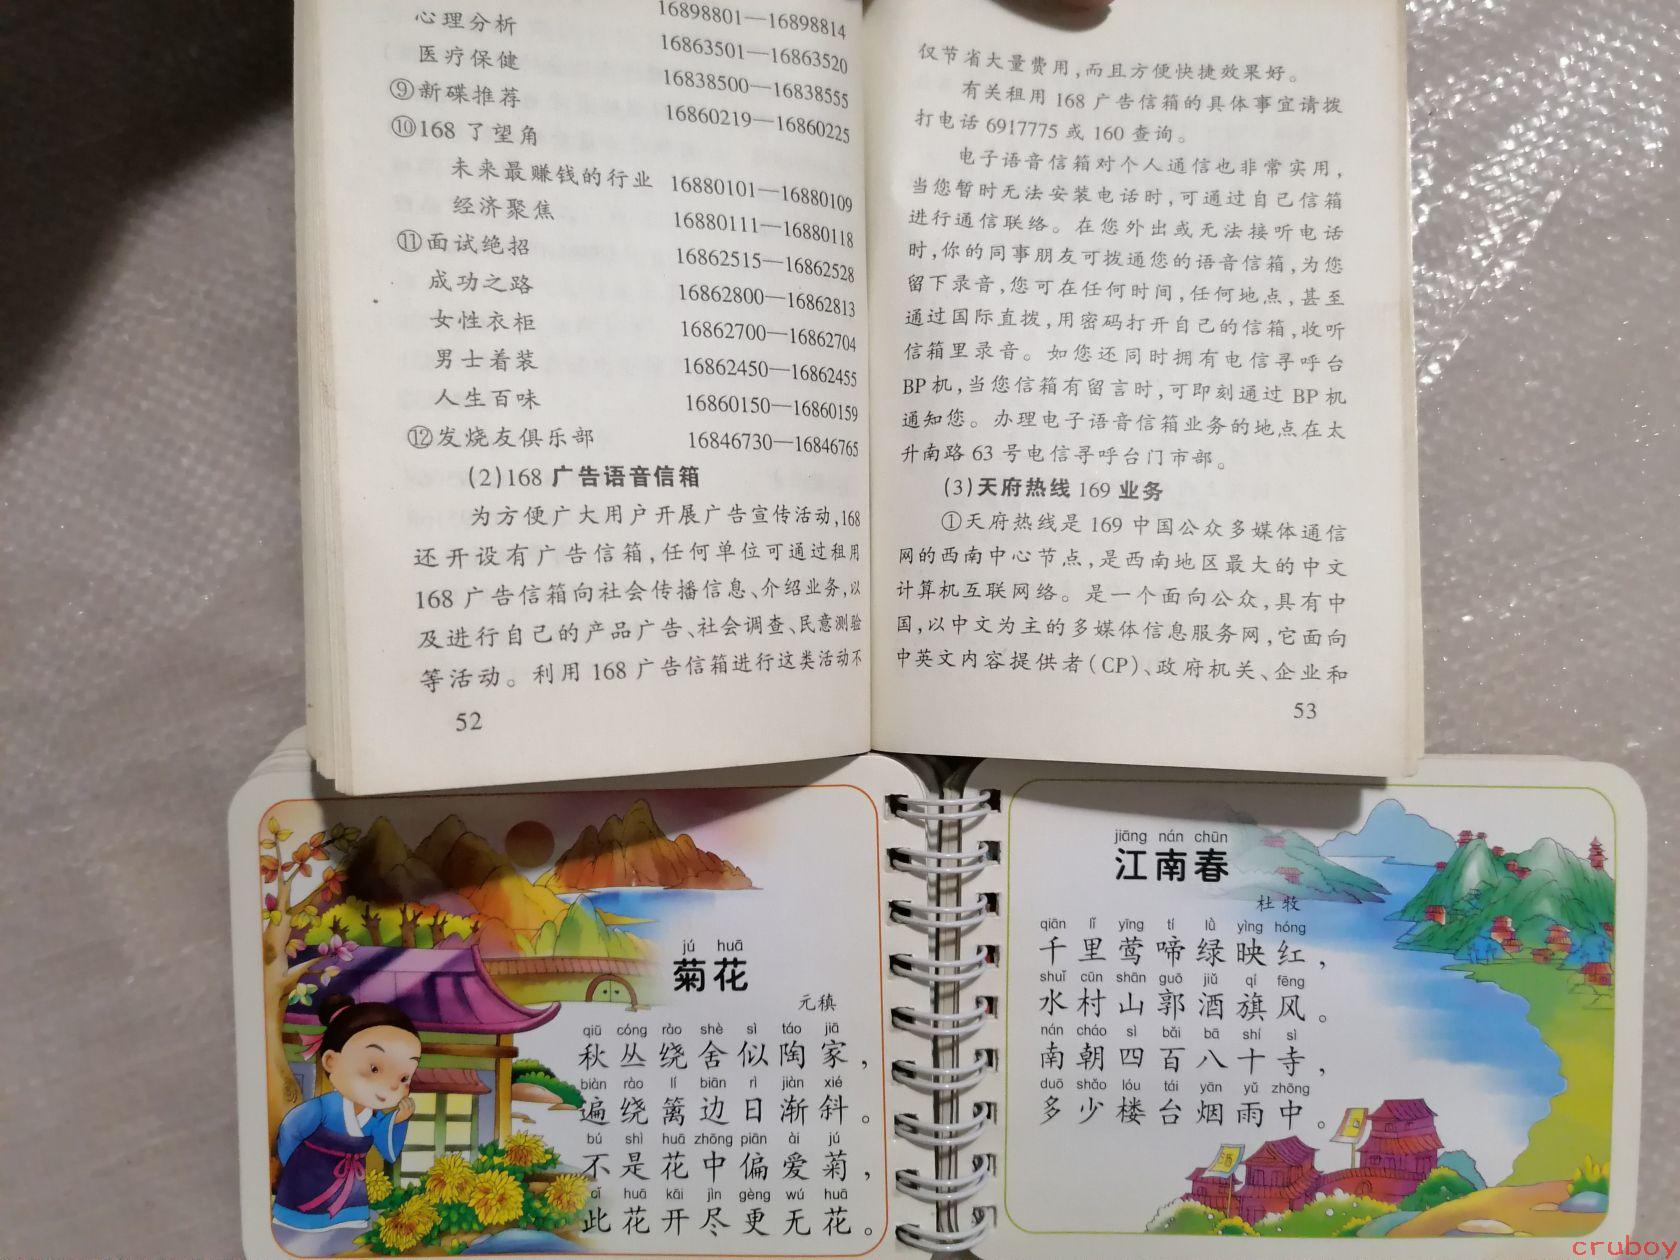 心理分析 16898801—16898814
医疗保健 16863501—16863520
⑨新碟推荐 16838500—16838555
⑩168了望角 16860219—16860225
未来最赚钱的行业 16880101—16880109
经济聚焦 16880111—16880118
⑪面试绝招 16862515—16862528
成功之路 16862800—16862813
女性衣柜 16862700—16862704
男士着装 16862450—16862455
人生百味 16860150—16860159
⑫发烧友俱乐部 16846730—16846765
(2)168广告语音信箱
为方便广大用户开展广告宣传活动,168
还开设有广告信箱,任何单位可通过租用
168广告信箱向社会传播信息、介绍业务,以
及进行自己的产品广告、社会调查、民意测验
等活动。利用168广告信箱进行这类活动不
52
仅节省大量费用,而且方便快捷效果好。
有关租用168广告信箱的具体事宜请拨
打电话6917775或160查询。
电子语音信箱对个人通信也非常实用,
当您暂时无法安装电话时,可通过自己信箱
进行通信联络。在您外出或无法接听电话
时,你的同事朋友可拨通您的语音信箱,为您
留下录音,您可在任何时间,任何地点,甚至
通过国际直拨,用密码打开自己的信箱,收听
信箱里录音。如您还同时拥有电信寻呼台
BP机,当您信箱有留言时,可即刻通过BP机
通知您。办理电子语音信箱业务的地点在太
升南路63号电信寻呼台门市部。
(3)天府热线169业务
①天府热线是169中国公众多媒体通信
网的西南中心节点,是西南地区最大的中文
计算机互联网络。是一个面向公众,具有中
国,以中文为主的多媒体信息服务网,它面向
中英文内容提供者(CP)、政府机关、企业和
53
jú huā
菊花
元稹
qiū cóng rào shè sì táo jiā
秋丛绕舍似陶家,
biàn rào lí biān rì jiàn xié
遍绕篱边日渐斜。
bú shì huā zhōng piān ài jú
不是花中偏爱菊,
cǐ huā kāi jìn gèng wú huā
此花开尽更无花。
jiāng nán chūn
江南春
杜牧
qiān lǐ yīng tí lǜ yìng hóng
千里莺啼绿映红,
shuǐ cūn shān guō jiǔ qí fēng
水村山郭酒旗风。
nán cháo sì bǎi bā shí sì
南朝四百八十寺,
duō shǎo lóu tái yān yǔ zhōng
多少楼台烟雨中。
酒
cruboy